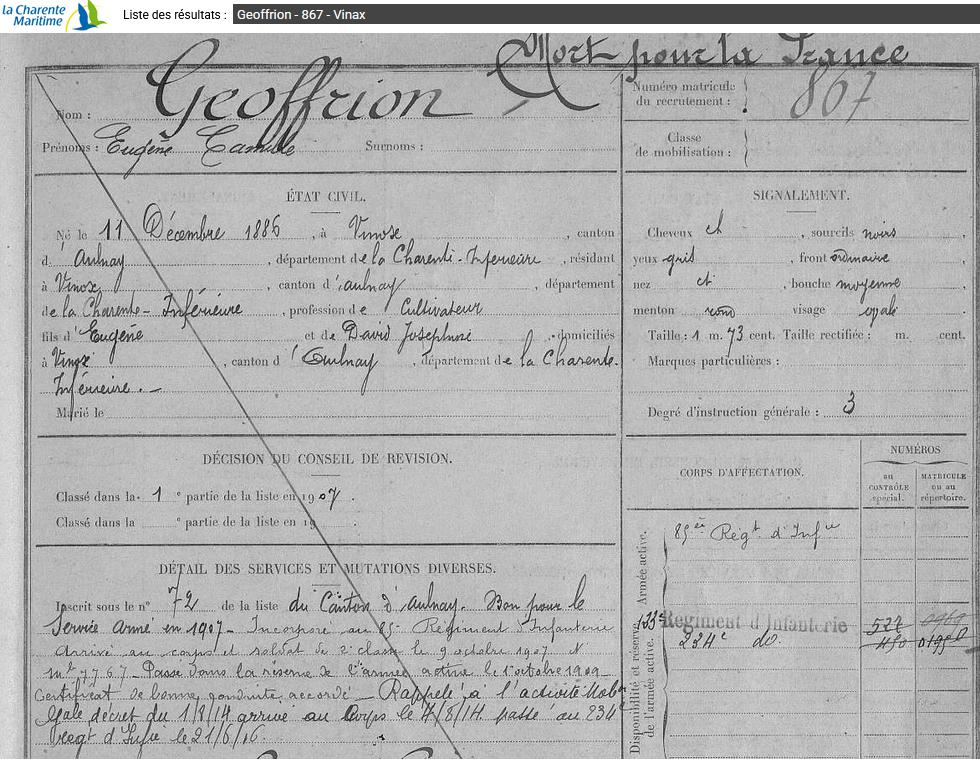 la Charente Maritime
Liste des résultats : Geoffrion - 867 - Vinax
Mort pour la France
Nom : Geoffrion
Prénoms : Eugène Camille Surnoms :
Numéro matricule du recrutement : 867
Classe de mobilisation :
ÉTAT CIVIL.
Né le 11 Décembre 1886, à Vinax, canton
d'Aulnay, département de la Charente-Inférieure, résidant
à Vinax, canton d'aulnay, département
de la Charente-Inférieure, profession de Cultivateur
fils d'Eugène et de David Joséphine domiciliés
à Vinax, canton d'Aulnay, département de la Charente-
Inférieure. -
Marié le
SIGNALEMENT.
Cheveux ch, sourcils noirs,
yeux gris, front ordinaire
nez, bouche moyenne
menton rond visage ovale
Taille : 1 m. 73 cent. Taille rectifiée : m. cent.
Marques particulières :
Degré d'instruction générale : 3
DÉCISION DU CONSEIL DE REVISION.
Classé dans la 1e partie de la liste en 1907.
Classé dans la e partie de la liste en 19 .
DÉTAIL DES SERVICES ET MUTATIONS DIVERSES.
Inscrit sous le no 72 de la liste du Canton d'aulnay. Bon pour le
Service Armé en 1907 - Incorporé au 85e Régiment d'Infanterie
Arrivé au corps et soldat de 2e classe le 9 octobre 1907 N
mle 7767. Passé dans la réserve de l'armée active le 1 octobre 1909.
Certificat de bonne conduite accordé - Rappelé à l'activité Mob
gale décret du 1/8/14 arrivé au Corps le 4/8/14. passé au 234e
Regt d'Infie le 21/6/16.
CORPS D'AFFECTATION.
NUMÉROS
au CONTRÔLE spécial.
MATRICULE ou au répertoire.
Armée active.
85e Régt d'Infie
Disponibilité et réserve de l'armée active.
Régiment d'Infanterie
234e do.